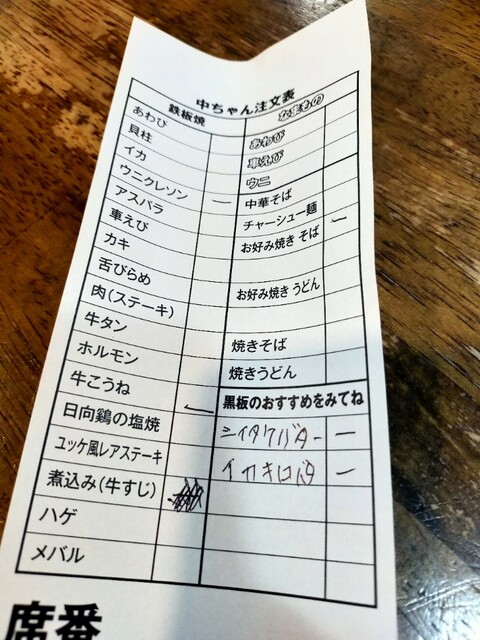 中ちゃん注文表
鉄板焼
あわび
貝柱
イカ
ウニクレソン 一
アスパラ
車えび
カキ
舌びらめ
肉(ステーキ)
牛タン
ホルモン
牛こうね
日向鶏の塩焼 一
ユッケ風レアステーキ
煮込み(牛すじ)
ハゲ
メバル
なまもの
あわび
車えび
ウニ
中華そば
チャーシュー麺
お好み焼き そば 一
お好み焼き うどん
焼きそば
焼きうどん
黒板のおすすめをみてね
シイタケバター 一
イカキロバタ 一
席番